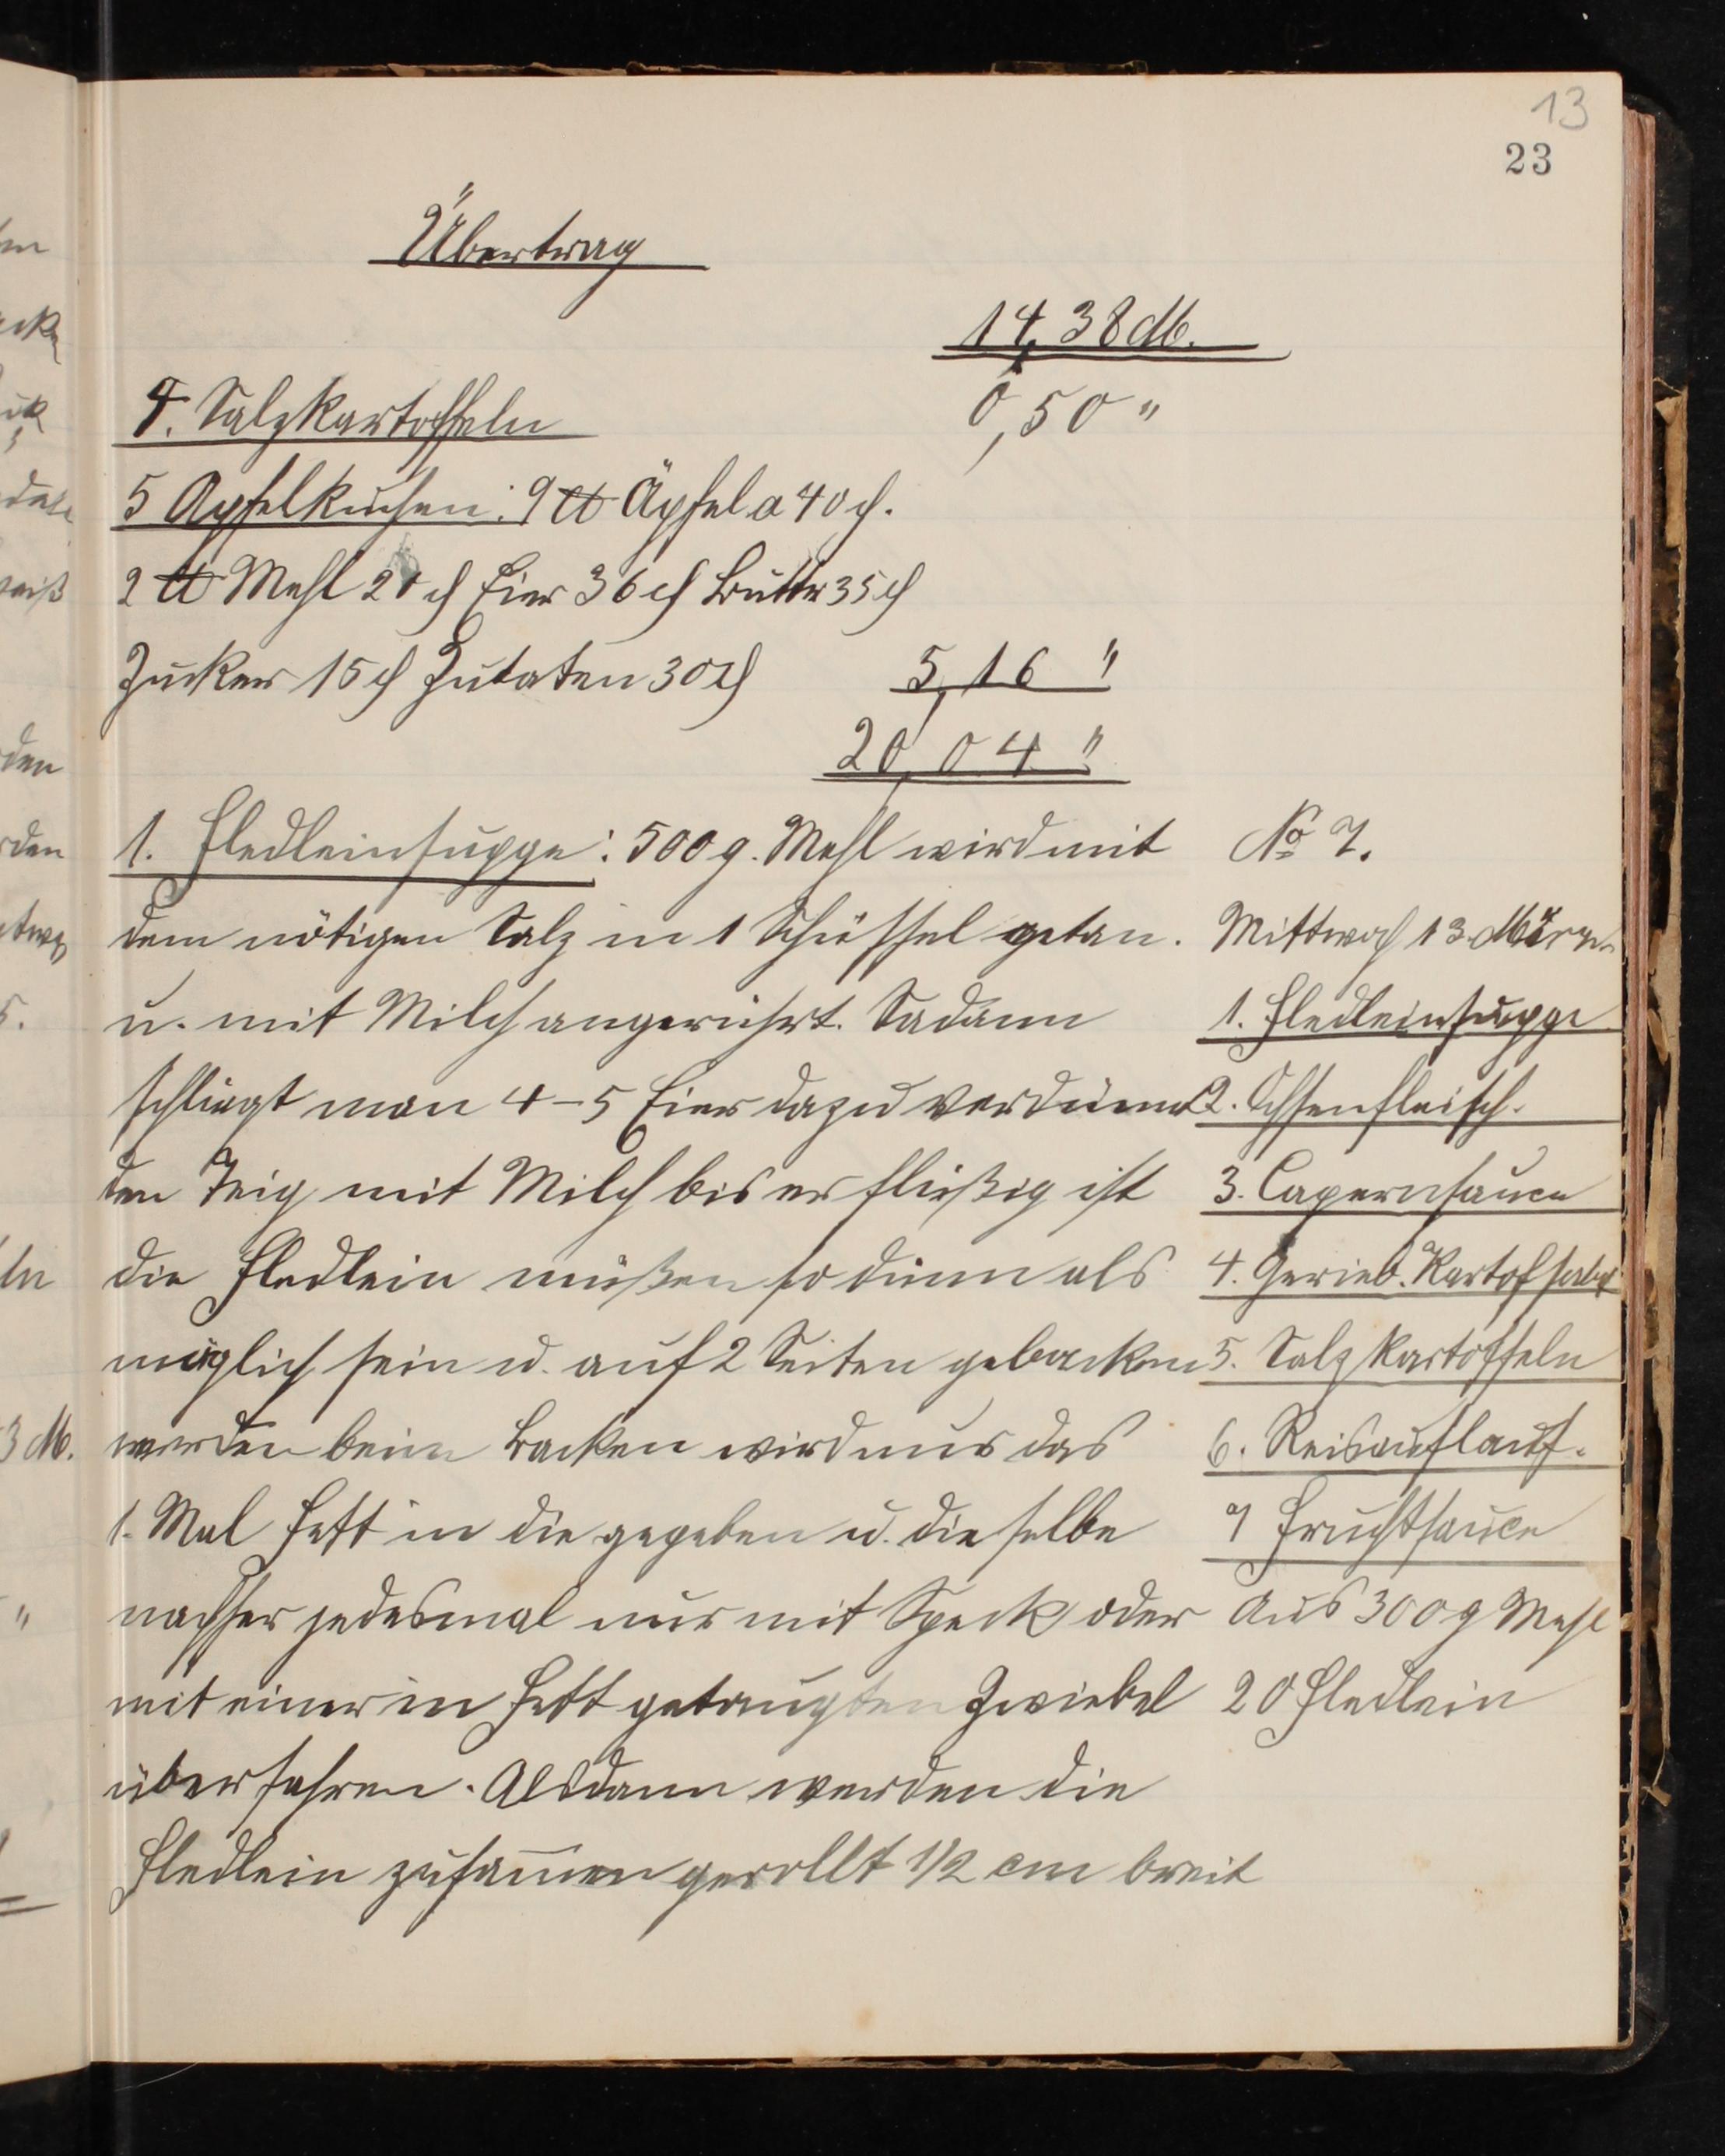 13
23
Übertrag
14,38 M.
4. Salzkartoffeln 0,50 "
5 Apfelkuchen: 9 ℔ Äpfel a 40 ₰.
2 ℔ Mehl 20 ₰ Eier 36 ₰ Butter 35 ₰
Zucker 15 ₰ Zutaten 30 ₰ 5,16 "
20,04 "
1. Fledleinsuppe: 500 g. Mehl wird mit
dem nötigen Salz in 1 Schüssel getan.
u. mit Milch angerührt. Sadann
schlägt man 4-5 Eier dazu verdünnt
den Teig mit Milch bis er flüßig ist
die Fledlein müßen so dünn als
möglich sein u. auf 2 Seiten gebacken
werden beim Backen wird nur das
1. Mal Fett in die gegeben u. dieselbe
nachher jedesmal nur mit Speck oder
mit einer in Fett getaugten Zwiebel
überfahren. Alsdann werden die
Fledlein zusam̅en gerollt 1/2 cm breit
No 7.
Mittwoch 13. März.
1. Fledleinsuppe
2. Ochsenfleisch.
3. Capernsauce
4. Gerieb. Kartofsalat
5. Salzkartoffeln
6. Reisauflauf.
7 Fruchtsauce
Aus 300 g Mehl
20 Fledlein